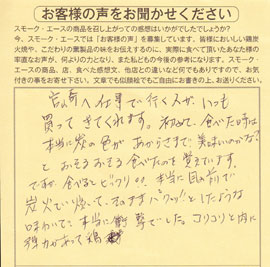 お客様の声をお聞かせください
スモーク・エースの商品を召し上がっての感想はいかがでしたでしょうか？
今、スモーク・エースでは「お客様の声」を募集しています。皆様においしい鶏炭
火焼や、こだわりの薫製品の味をお伝えするのに、実際に食べて頂いたあなた様の
率直なお声が、何よりの力となり、また私どもの今後の参考になります。スモーク・
エースの商品、店、食べた感想文、他店との違いなど何でもありですので、お気
付きの事をお寄せ下さい。文章でも似顔絵でもご自由にお書きの上、お送りください。
宮崎へ仕事で行く人が、いつも
買ってきてくれます。初めて、食べた時は
本当に炭の色があからさまで、美味しいのかな?
と おそるおそる食べたのを覚えています。
ですが、食べるとビックリ!!、本当に目の前で
炭火で焼いて、そのままパクッ!!としたような
味わいで、本当に衝撃でした。コリコリと肉に
弾力があって鶏